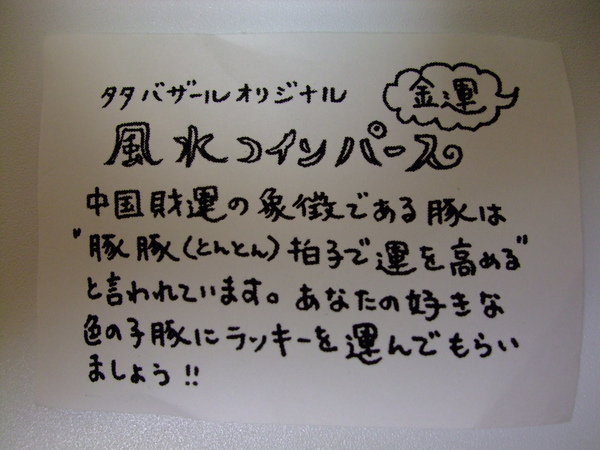 タタバザールオリジナル
金運
風水コインパース
中国財運の象徴である豚は
"豚豚(とんとん)拍子で運を高める"
と言われています。あなたの好きな
色の子豚にラッキーを運んでもらい
ましょう!!